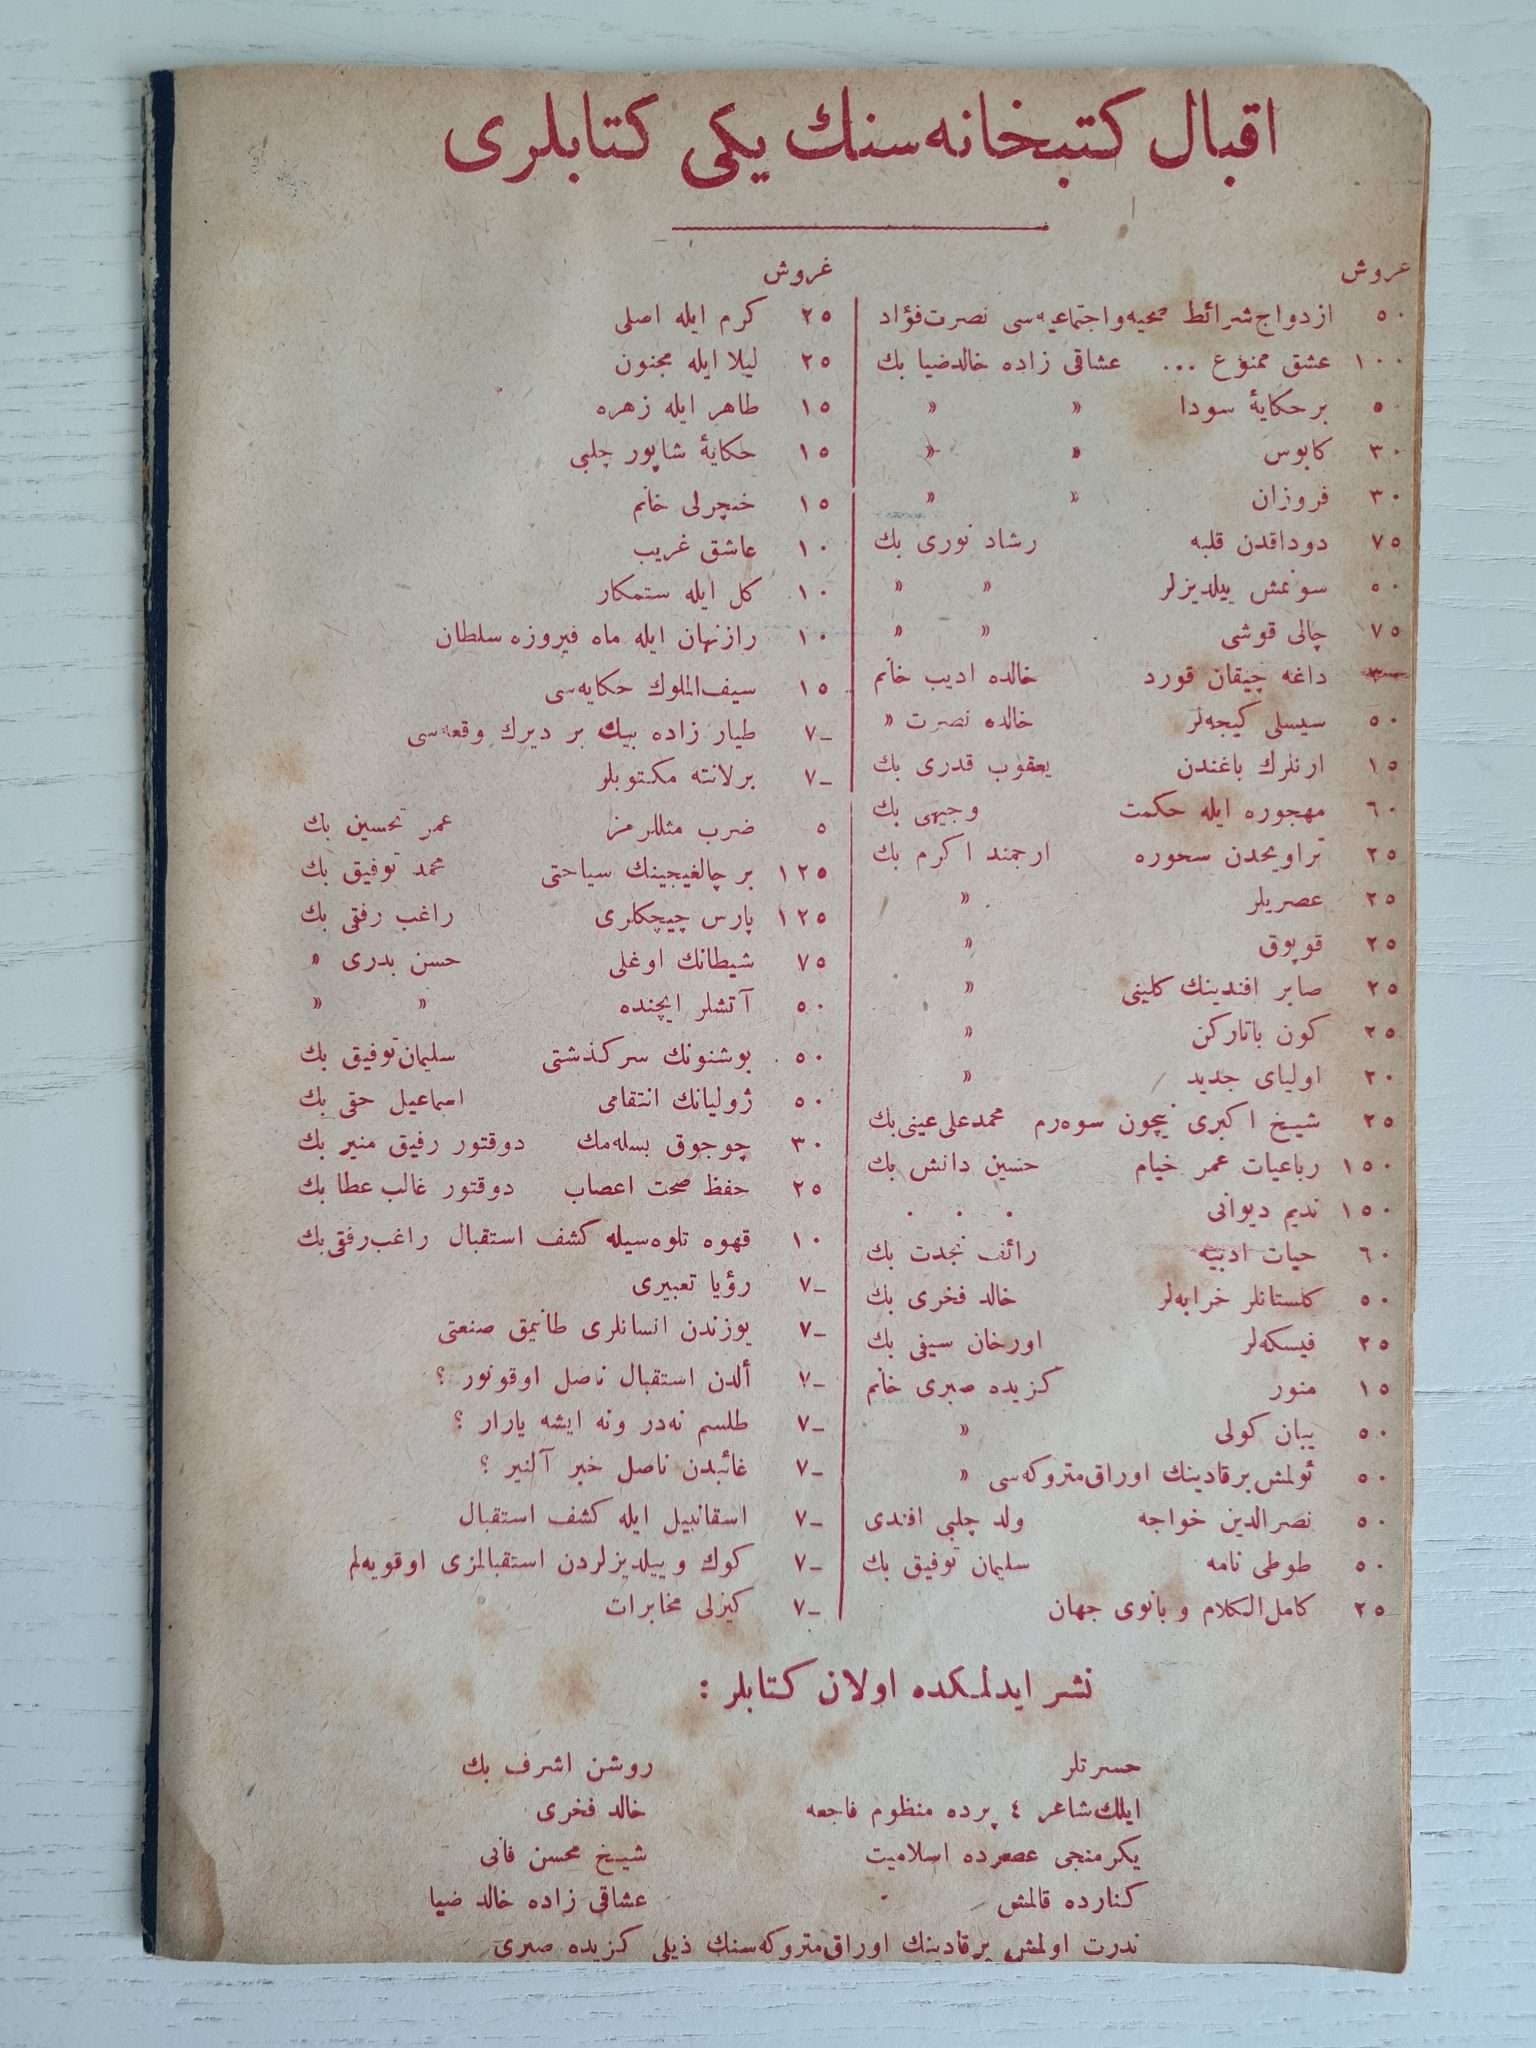 اقبال كتبخانه سنك يكى كتابلرى
غروش
٥٠ ازدواج شرائط صحيه و اجتماعيه سى نصرت فؤاد
١٠٠ عشق ممنوع ... عشاقى زاده خالد ضيا بك
٥٠ بر حكايۀ سودا » »
٣٠ كابوس » »
٣٠ فروزان » »
٧٥ دوداقدن قلبه رشاد نورى بك
٥٠ سونمش ييلديزلر » »
٧٥ چالى قوشى » »
٣٠ داغه چيقان قورد خالده اديب خانم
٥٠ سيسلى كيجه لر خالده نصرت »
١٥ ارنلرك باغندن يعقوب قدرى بك
٦٠ مهجوره ايله حكمت وجيهى بك
٢٥ تراويحدن سحوره ارجمند اكرم بك
٢٥ عصريلر »
٢٥ قوپوق »
٢٥ صابر افندينك كلينى »
٢٥ كون باتاركن »
٢٠ اولياى جديد »
٢٥ شيخ اكبرى نيچون سوه رم محمد على عينى بك
١٥٠ رباعيات عمر خيام حسين دانش بك
١٥٠ نديم ديوانى . . .
٦٠ حيات ادبيه رائف نجدت بك
٥٠ كلستانلر خرابه لر خالد فخرى بك
٢٥ فيسكه لر اورخان سيفى بك
١٥ منور كزيده صبرى خانم
٥٠ يبان كولى »
٥٠ ئولمش بر قادينك اوراق متروكه سى »
٥٠ نصرالدين خواجه ولد چلبى افندى
٥٠ طوطى نامه سليمان توفيق بك
٢٥ كامل الكلام و بانوى جهان
غروش
٢٥ كرم ايله اصلى
٢٥ ليلا ايله مجنون
١٥ طاهر ايله زهره
١٥ حكايۀ شاپور چلبى
١٥ خنچرلى خانم
١٠ عاشق غريب
١٠ كل ايله ستمكار
١٠ رازنهان ايله ماه فيروزه سلطان
١٥ سيف الملوك حكايه سى
٧_ طيار زاده بيك بر ديرك وقعه سى
٧_ برلانته مكتوبلر
٥ ضرب مثللرمز عمر تحسين بك
١٢٥ بر چالغيجينك سياحتى محمد توفيق بك
١٢٥ پارس چيچكلرى راغب رفقى بك
٧٥ شيطانك اوغلى حسن بدرى »
٥٠ آتشلر ايچنده » »
٥٠ بوشنونك سركذشتى سليمان توفيق بك
٥٠ ژوليانك انتقامى اسماعيل حقى بك
٣٠ چوجوق بسله مك دوقتور رفيق منير بك
٢٥ حفظ صحت اعصاب دوقتور غالب عطا بك
١٠ قهوه تلوه سيله كشف استقبال راغب رفقى بك
٧_ رؤيا تعبيرى
٧_ يوزندن انسانلرى طانيمق صنعتى
٧_ ألدن استقبال ناصل اوقونور ؟
٧_ طلسم نه در و نه ايشه يارار ؟
٧_ غائبدن ناصل خبر آلنير ؟
٧_ اسقانبيل ايله كشف استقبال
٧_ كوك و ييلديزلردن استقبالمزى اوقويه لم
٧_ كيزلى مخابرات
نشر ايدلمكده اولان كتابلر :
حسرتلر روشن اشرف بك
ايلك شاعر ٤ پرده منظوم فاجعه خالد فخرى
يكرمنجى عصرده اسلاميت شيخ محسن فانى
كنارده قالمش عشاقى زاده خالد ضيا
ندرت اولمش بر قادينك اوراق متروكه سنك ذيلى كزيده صبرى